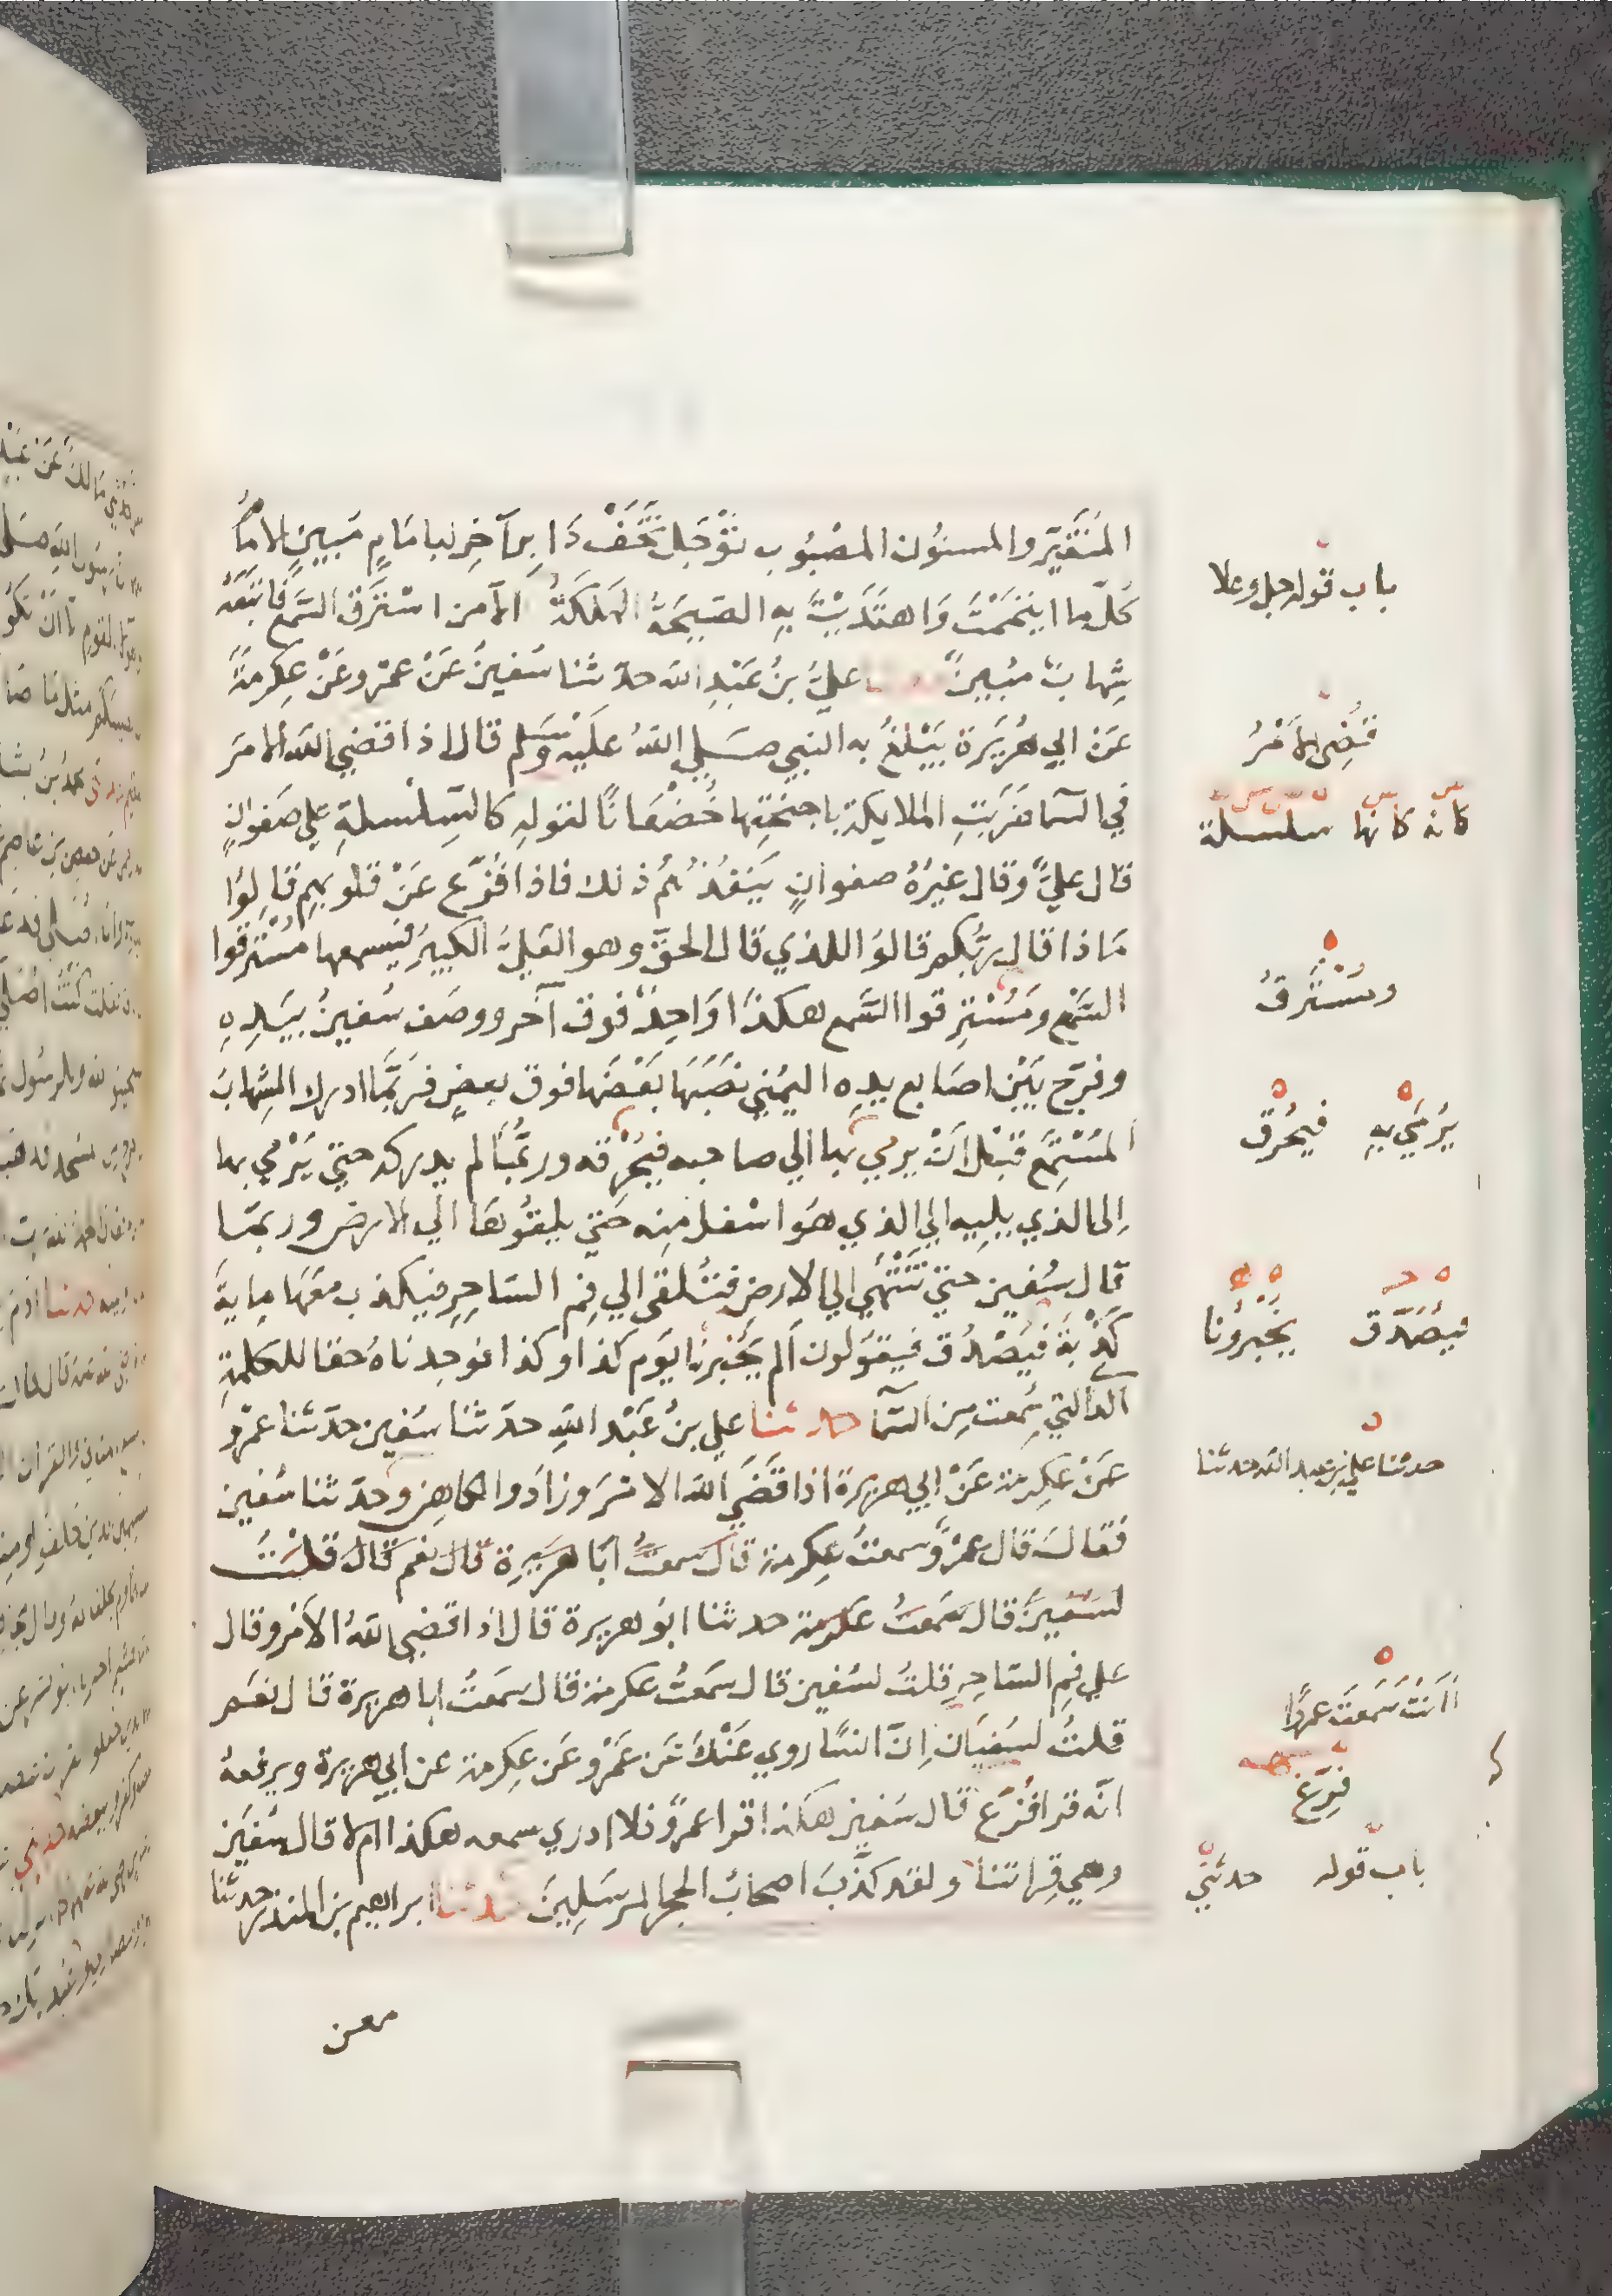 المُتَغَيِّر والمسنُون المصْبُوب تَوْجَل تَخَفْ دَابِرَ آخِرَ لبامَامٍ مُبِينٍ الامَامُ
كُلّ ما ايتَمَمْتَ وَاهتَدَيْتَ بِهِ الصَيحَةُ الهَلَكَةُ الّا من اسْتَرَقَ السَّمْعَ فَاتبَعَهُ
شِهابٌ مُبينٌ حدثنا عليُّ بنُ عَبْدِ الله حدثنا سُفينُ عَنْ عَمْرو عَنْ عِكرمَةَ
عَن ابي هُرَيرَة يَبْلغُ به النبي صَلي اللهُ عَلَيْه وَسَلم قال اذا قضي الله الامرَ
في السّما ضَرَبَتِ الملايكة باجنحَتِها خُضْعَانًا لقولِهِ كالسِلْسلةِ علي صَفوانٍ
قال عليٌّ وقال غيرُهُ صفوانٍ يَنفُذُهُم ذلك فاذا فُزِّعَ عَنْ قلوبهِم قالوُا
مَاذا قال ربُّكم قالوُا للذي قال الحقَّ وهو العَليُّ الكبيرُ فيَسمعها مُسْتَرِقوا
السَّمْع ومَسْتَرِقوا السَّمع هكذا وَاحِدٌ فوق آخر ووصَف سُفينُ بيَدِهِ
وفرّج بَيْن اصَابع يدِه اليُمنَي نصَبَهَا بَعْضَها فوق بعضٍ فرُبَّمَا ادرك الشِهابُ
المُسْتَمِعَ قبْل اَنْ يرمي بها الي صاحبه فيُحْرِقه وربُّمَا لم يدركه حتي يَرْمي بها
اِلى الذي يلِيه الي الذي هوَ اسْفل مِنه حَتي يلقُوهَا الي الارض وربمَا
قال سُفين حتي تَنْتَهي الي الارض فتُلقى الي فمِ السَاحِرِ فيكذب معَهَا مِايةَ
كَذْبَة فَيُصَدَّق فيقوُلون اَلم يُخْبِرنا يَوم كذا وكذا فوجدناهُ حقا للكلمةِ
التي سُمعت مِن السّمَا حدثنا علي بنُ عَبْد اللهِ حدثنا سُفين حدثنا عَمْرو
عَنْ عِكرمة عَنْ ابي هريرة اذا قَضَي الله الامْرَ وزادَ والكاهِن وحدثنا سُفين
فقالَ قال عَمْرو سمعتُ عِكرمة قال سمعتُ ابَا هرَيرة قال نعم قَال قلْتُ
لسُفينَ قال سَمعتُ عكرمة حدثنا ابوُ هريرة قال اذا قضي اللهُ الاَمْر وقال
علي فمِ السَاحِرِ قلتُ لسُفين قال سَمعتُ عكرمة قال سَمعتُ ابا هريرة قال نعَم
قلتُ لسُفيَان اِنّ انسَانًا روي عَنْكَ عَن عَمْرو عَن عِكرمة عن ابي هريرة ويرفعهُ
انّه قرا فُزِّعَ قال سُفين هكذا قرا عمرٌو فلا ادري سمعه هكذا ام لا قال سُفين
وهي قِراتنا ولقد كذَّبَ اصحابُ الحجر المرسَلِينَ حدثنا ابراهيم بن المنذر حدثنا
معن
باب قوله جل وعلا
قُضِيَ الاَمْرُ
كانه كانها سلسلة
ومُسْتَرِقُ
يَرْمَي بهِ فيُحْرَق
فيُصَدَّق يُخْبِرُونا
حدثنا علي بن عبد الله حدثنا
أَأَنتَ سَمعتَ عمرًا
فُرِّغَ
باب قوله حدثني